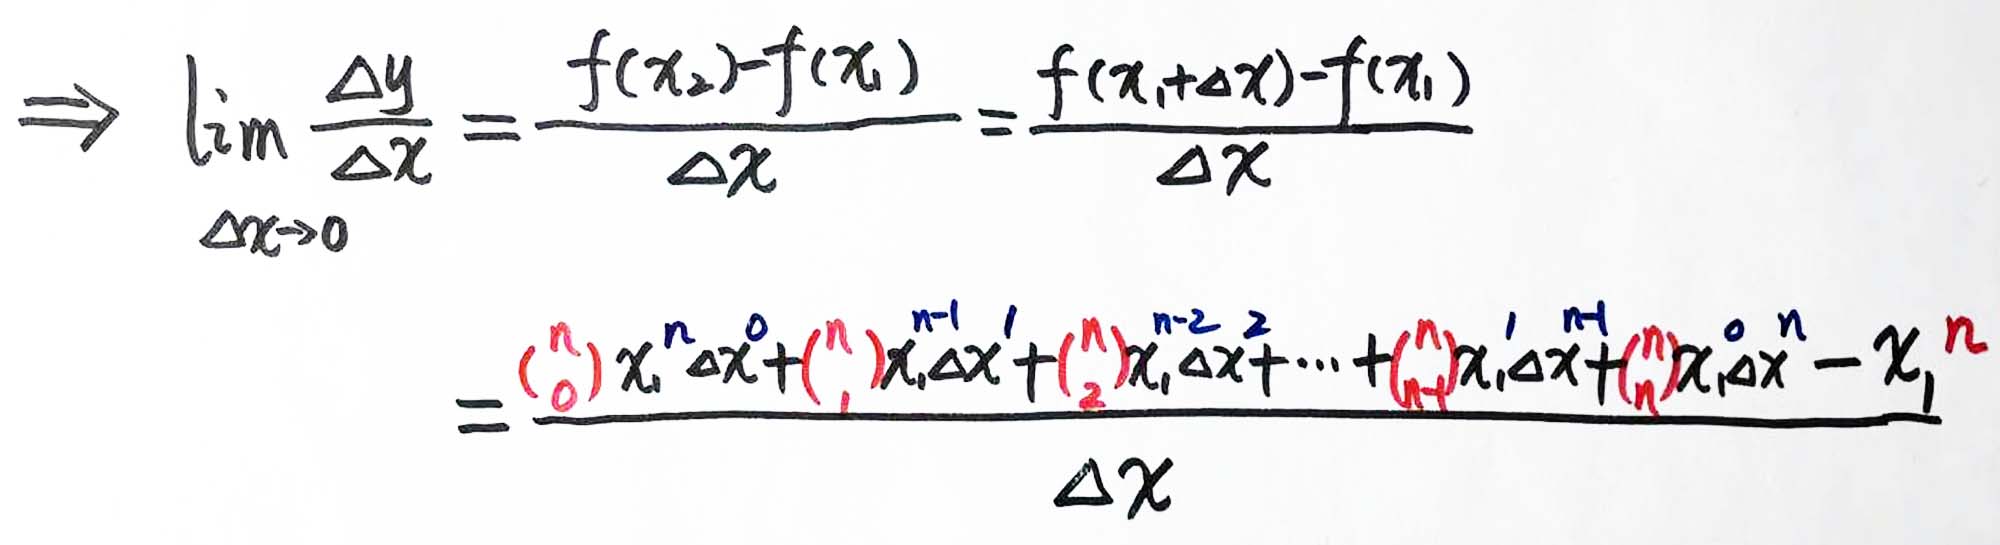 ⇒ lim Δx→0 Δy/Δx = (f(x₂)-f(x₁))/Δx = (f(x₁+Δx)-f(x₁))/Δx
= ((n 0)x₁ⁿΔx⁰+(n 1)x₁ⁿ⁻¹Δx¹+(n 2)x₁ⁿ⁻²Δx²+⋯+(n n-1)x₁¹Δxⁿ⁻¹+(n n)x₁⁰Δxⁿ-x₁ⁿ)/Δx